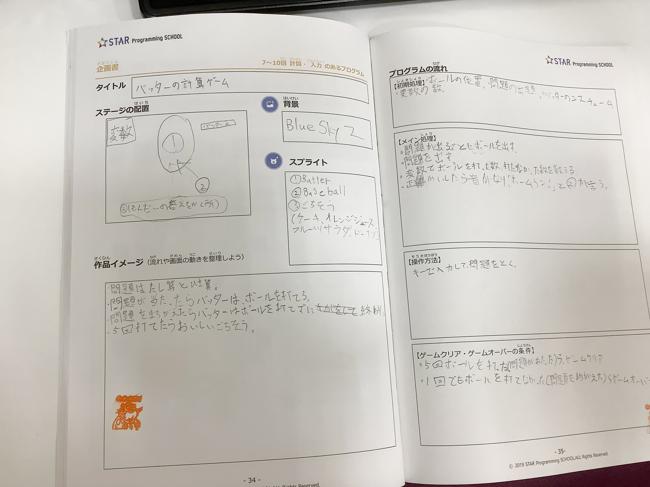 STAR Programming SCHOOL
企画書
7～10回 計算・入力 のあるプログラム
タイトル
バッターの計算ゲーム
ステージの配置
変数
①
②
背景
Blue Sky 2
スプライト
①Batter
②Baseball
③ごちそう
(ケーキ、オレンジジュース、
フルーツサラダ、ドーナツ)
作品イメージ（流れや画面の動きを整理しよう）
・問題はたし算とひき算。
・問題が当たったらバッターは、ボールを打てる。
・問題をまちがえたらバッターはボールを打てずに
・5回打てたらおいしいごちそう。
- 34 -
STAR Programming SCHOOL
プログラムの流れ
【初期処理】ボールの位置、問題の
・変数の数。
【メイン処理】
・問題が出るごとにボールを出す。
・問題を出す。
【操作方法】
キーで入力して問題をとく。
【ゲームクリア・ゲームオーバーの条件】
・5回ボールを打てた(問題があたった)らゲームクリア
・1回でもボールを打てなかった(問題をまちがえた)らゲームオーバー
- 35 -
© 2019 STAR Programming SCHOOL All Rights Reserved.